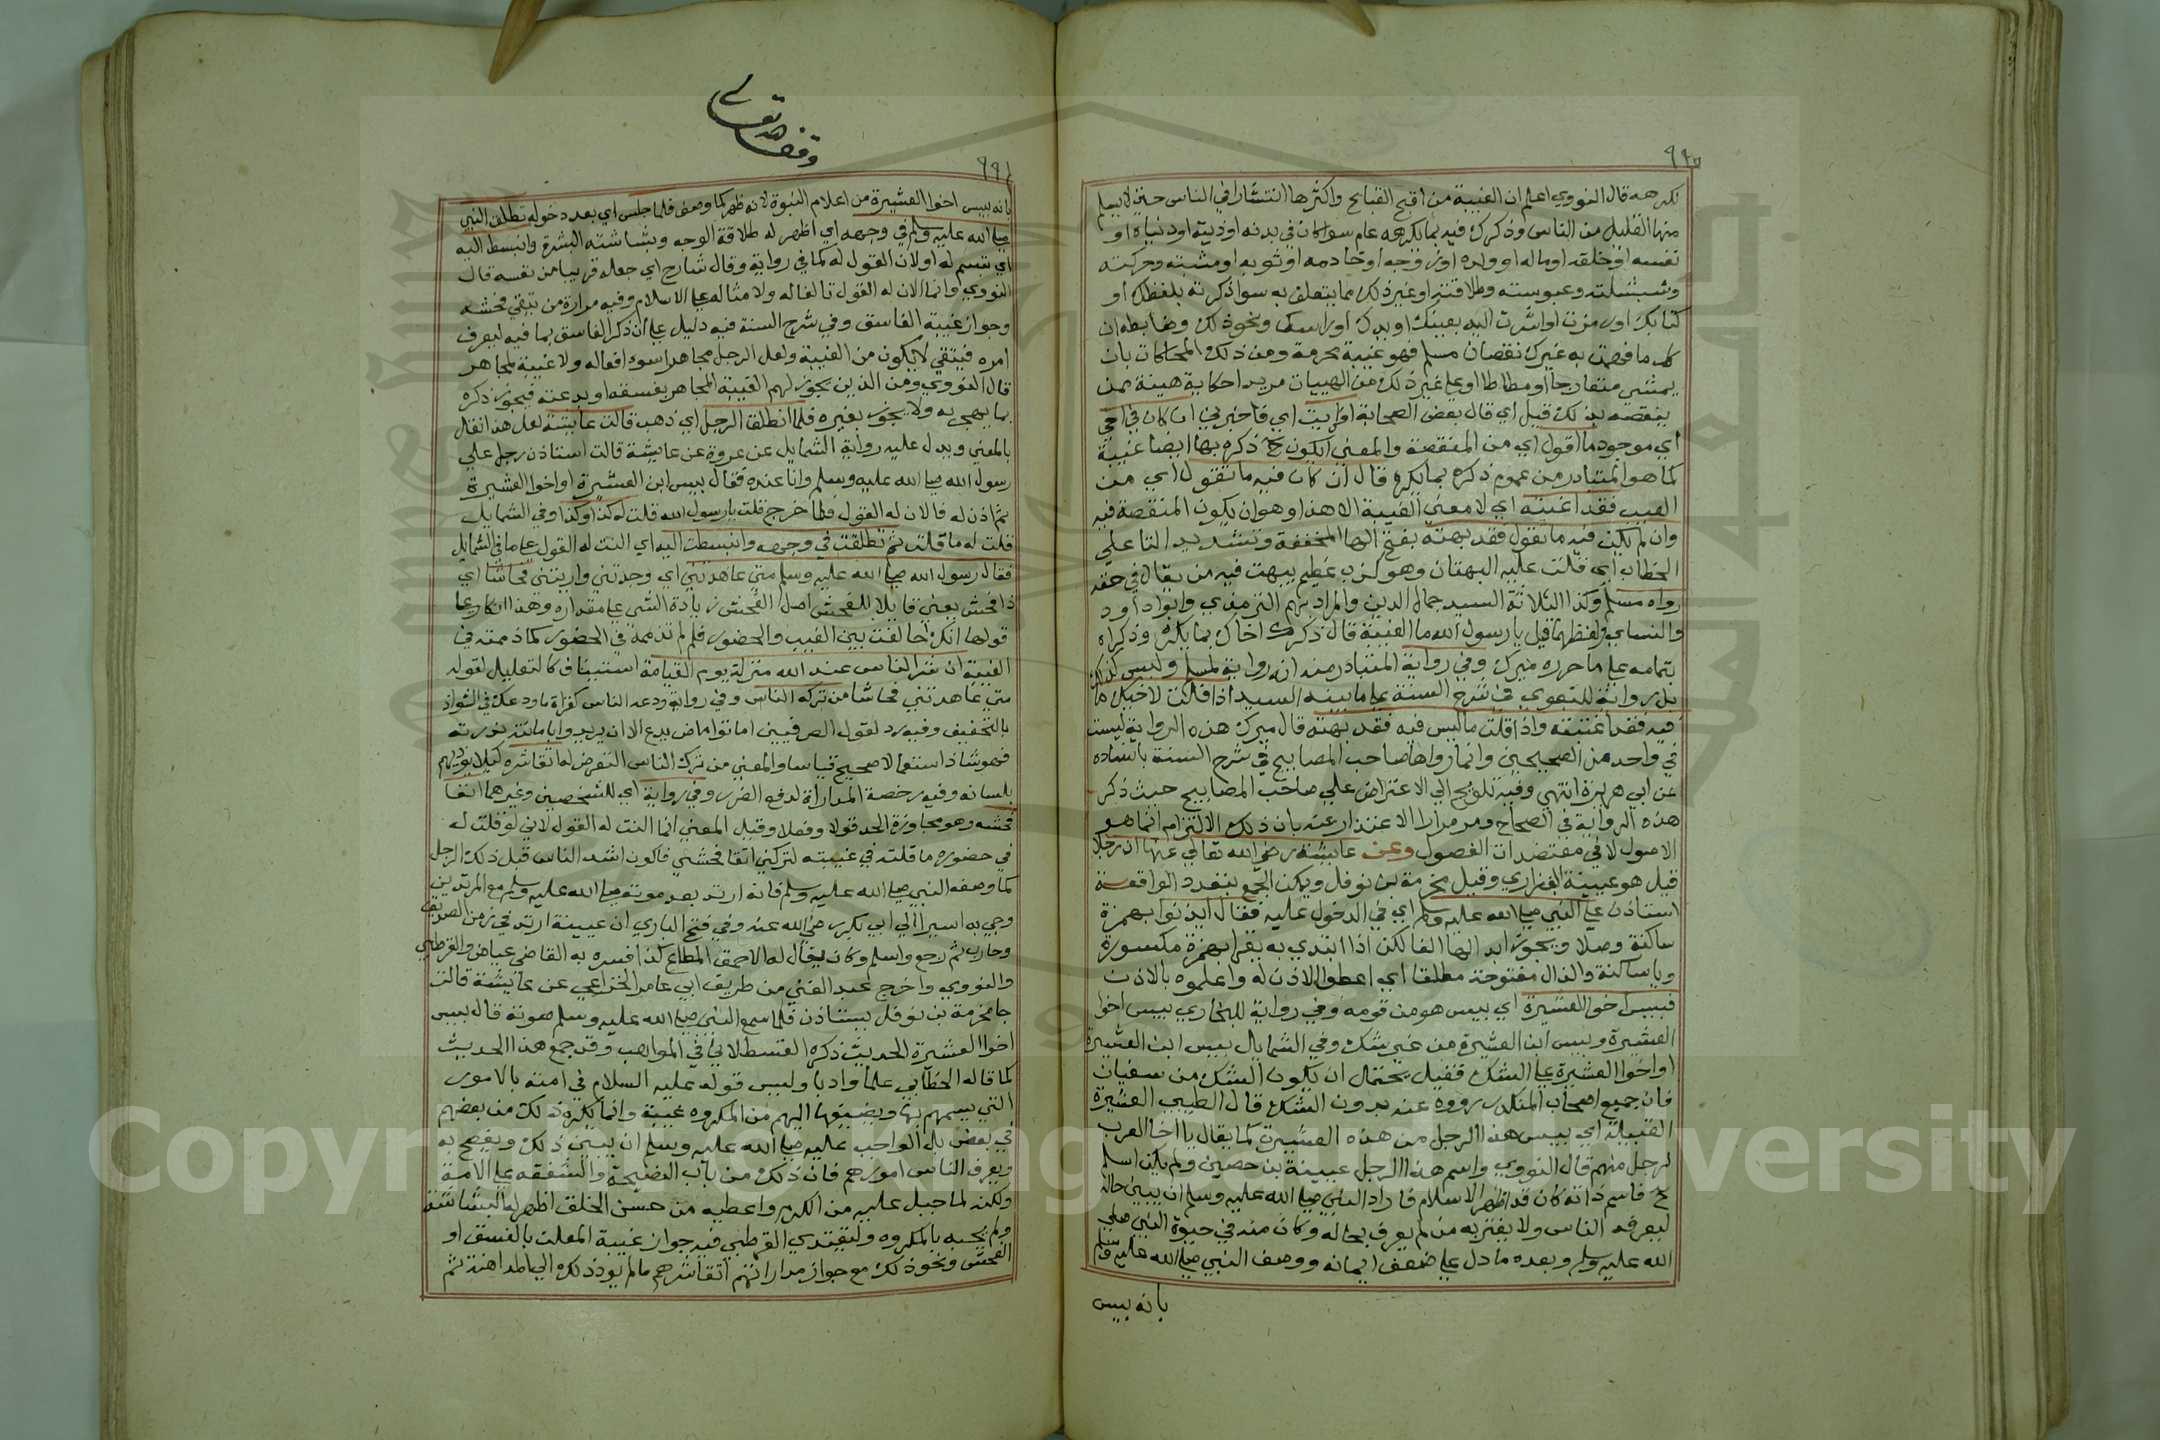 يكرهه قال النووي اعلم ان الغيبة من اقبح القبايح واكثرها انتشارا في الناس حتى لا يسلم
منها القليل من الناس وذكرك فيه بما يكرهه عام سواء كان في بدنه او دينه او دنياه او
نفسه او خلقه او ماله او ولده او زوجه او خادمه او ثوبه او مشيه وحركته
وبشاشته وعبوسته وطلاقته او غير ذلك مما يتعلق به سوا ذكرته بلفظك او
كتابك او رمزت او اشرت اليه بعينك او يدك او راسك ونحو ذلك وضابطه ان
كل ما افهمت به غيرك نقصان مسلم فهو غيبة محرمة ومن ذلك المحاكات بان
يمشي متعارجا او مطاطا او على غير ذلك من الهيات مريدا حكاية هيئة من
ينقصه بذلك قيل اي قال بعض الصحابة افرايت اي فاخبرني ان كان في اخي
اي موجودا ما اقول اي من المنقصة والمعنى ايكون ح ذكره بها ايضا غيبة
كما هو المتبادر من عموم ذكره بما يكره قال ان كان فيه ما تقول اي من
العيب فقد اغتبته اي لا معنى للغيبة الا هذا وهو ان يكون المنقصة فيه
وان لم يكن فيه ما تقول فقد بهته بفتح الها المخففة وتشديد التا على
الخطاب اي قلت عليه البهتان وهو كذب عظيم يبهت فيه من يقال في حقه
رواه مسلم وكذا الثلاثة السيد جمال الدين والمراد بهم الترمذي وابو داود
والنسايي ولفظهما قيل يا رسول الله ما الغيبة قال ذكرك اخاك بما يكره وذكراه
بتمامه على ما حرره ميرك وفي رواية المتبادر منه انه رواية لمسلم وليس كذلك
بل رواية للبغوي في شرح السنة على ما بينه السيد اذا قلت لاخيك ما
فيه فقد اغتبته واذا قلت ما ليس فيه فقد بهته قال ميرك هذه الرواية ليست
في واحد من الصحيحين وانما رواها صاحب المصابيح في شرح السنة باسناده
عن ابي هريرة انتهى وفيه تلويح الى الاعتراض على صاحب المصابيح حيث ذكر
هذه الرواية في الصحاح ومر مرارا الاعتذار عنه بان ذلك الالتزام انما هو
الاصول لا في معتضدات الفصول وعن عايشة رضي الله تعالى عنها ان رجلا
قيل هو عيينة الفزاري وقيل مخرمة بن نوفل ويمكن الجمع بتعدد الواقعة
استاذن على النبي صلى الله عليه وسلم اي في الدخول عليه فقال ايذنوا بهمزة
ساكنة وصلا ويجوز ابدالها الفا لكن اذا ابتدي به يقرا بهمزة مكسورة
وياساكنة والذال مفتوحة مطلقا اي اعطوا الاذن له واعلموه بالاذن
فبيس اخو العشيرة اي بيس هو من قومه وفي رواية للبخاري بيس اخوا
العشيرة وبيس ابن العشيرة من غير شك وفي الشمايل بيس ابن العشيرة
او اخوا العشيرة على الشك فقيل يحتمل ان يكون الشك من سفيان
فان جميع اصحاب المنكدر رووه عنه بدون الشك قال الطيبي العشيرة
القبيلة اي بيس هذا الرجل من هذه العشيرة كما يقال يا اخا العرب
لرجل منهم قال النووي واسم هذا الرجل عيينة بن حصين ولم يكن اسلم
ح فاسم ذاته كان قد اظهر الاسلام فاراد النبي صلى الله عليه وسلم ان يبين حاله
ليعرفه الناس ولا يغتر به من لم يعرف بحاله وكان منه في حيوة النبي صلى
الله عليه وسلم وبعده ما دل على ضعف ايمانه ووصف النبي صلى الله عليه وسلم
بانه بيس
٩٩١
وقف لله تعالى
بانه بيس اخوا العشيرة من اعلام النبوة لانه ظهر كما وصف فلما جلس اي بعد دخوله تطلق النبي
صلى الله عليه وسلم في وجهه اي اظهر له طلاقة الوجه وبشاشته البشرة وانبسط اليه
اي تبسم له او لان القول له كما في رواية وقال شارح اي جعله قريبا من نفسه قال
النووي وانما الان له القول تالفا له ولامثاله على الاسلام وفيه مداراة من يتقى فحشه
وجواز غيبة الفاسق وفي شرح السنة فيه دليل على ان ذكر الفاسق بما فيه ليعرف
امره فيتقي لا يكون من الغيبة ولعل الرجل مجاهرا سوء افعاله ولا غيبة لمجاهر
قال النووي ومن الذين يجوز لهم الغيبة المجاهر بفسقه او بدعته فيجوز ذكره
بما يجهر به ولا يجوز بغيره فلما انطلق الرجل اي ذهب قالت عايشة لعل هذا نقل
بالمعنى ويدل عليه رواية الشمايل عن عروة عن عايشة قالت استاذن رجل على
رسول الله صلى الله عليه وسلم وانا عنده فقال بيس ابن العشيرة او اخوا العشيرة
ثم اذن له فالان له القول فلما خرج قلت يا رسول الله قلت له كذا وكذا وفي الشمايل
قلت له ما قلت ثم تطلقت في وجهه وانبسطت اليه اي النت له القول على ما في الشمايل
فقال رسول الله صلى الله عليه وسلم متى عاهدتني اي وجدتني ورايتني فحاشا اي
ذا فحش يعني قايلا للفحش اصل الفحش زيادة الشي على مقداره وهذا انكار على
قولها انك خالفت بين الغيب والحضور فلم لم تذمه في الحضور كما ذممته في
الغيبة ان شر الناس عند الله منزلة يوم القيامة استيناف كالتعليل لقوله
متى عاهدتني فحاشا من تركه الناس وفي رواية ودعه الناس كقراة ما ودعك في الشواذ
بالتخفيف وفيه رد لقول الصرفيين اماتوا ماضي يدع الا ان يريدوا باماتته ندرته
فهو شاذ استعمالا صحيح قياسا والمعنى من ترك الناس التعرض له اتقا شره كيلا يوذيهم
بلسانه وفيه رخصة المداراة لدفع الضرر وفي رواية اي للشيخين وغيرهما اتقا
فحشه وهو مجاوزة الحد قولا وفعلا وقيل المعنى انما النت له القول لاني لو قلت له
في حضوره ما قلته في غيبته لتركني اتقا فحشي فاكون اشد الناس قيل ذلك الرجل
كما وصفه النبي صلى الله عليه وسلم فانه ارتد بعد موته صلى الله عليه وسلم مع المرتدين
وجي به اسيرا الى ابي بكر رضي الله عنه وفي فتح الباري ان عيينة ارتد في زمن الصديق
وحارب ثم رجع واسلم وكان يقال له الاحمق المطاع كذا فسره به القاضي عياض والقرطبي
والنووي واخرج عبد الغني من طريق ابي عامر الخزاعي عن عايشة قالت
جا مخرمة بن نوفل يستاذن فلما سمع النبي صلى الله عليه وسلم صوته قال بيس
اخوا العشيرة الحديث ذكره القسطلاني في المواهب وقد جمع هذا الحديث
كما قاله الخطابي علما وادبا وليس قوله عليه السلام في امته بالامور
التي يسمهم بها ويضيفها اليهم من المكروه غيبة وانما يكون ذلك من بعضهم
في بعض بل الواجب عليه صلى الله عليه وسلم ان يبين ذلك ويفصح به
ويعرف الناس امورهم فان ذلك من باب النصيحة والشفقه على الامة
ولكنه لما جبل عليه من الكرم واعطيه من حسن الخلق اظهر له البشاشة
ولم يجبه بالمكروه وليقتدي القرطبي فيه جواز غيبة المعلن بالفسق او
الفحش ونحو ذلك مع جواز مداراتهم اتقا شرهم ما لم يود ذلك الى المداهنة ثم
Copyright © King Saud University